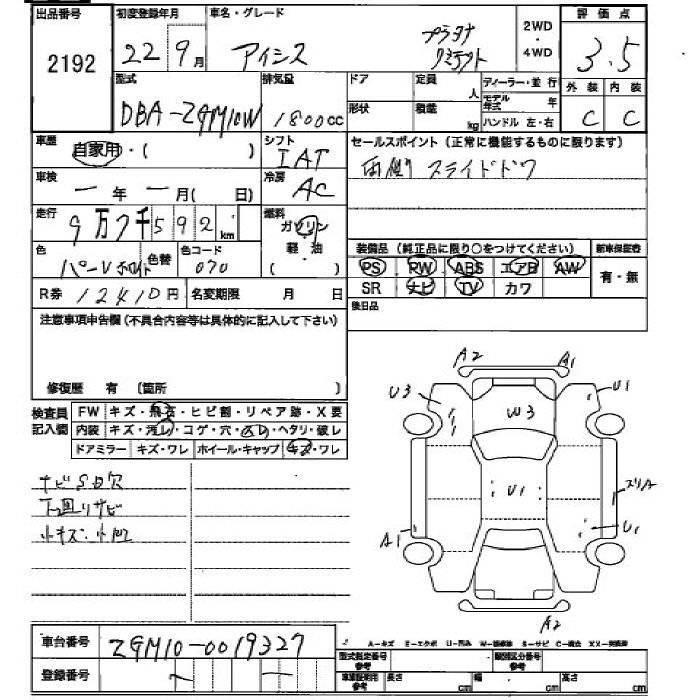 出品番号 初度登録年月 車名・グレード 評価点
2192 22年9月 アイシス プラタナ リミテット 2WD・4WD 3.5
型式 排気量 ドア 定員 人 ディーラー・並行 外装 内装
DBA-ZGM10W 1800cc 形状 積載 kg モデル年式 年 ハンドル 左・右 C C
車歴 自家用・( ) シフト IAT セールスポイント(正常に機能するものに限ります)
車検 一年一月(日) 冷房 AC 両側スライドドワ
走行 9万7千592km 燃料 ガソリン 軽・油 ( )
装備品(純正品に限り○をつけてください) 新車保証書
色 パールホワイト 色替 色コード 070 PS PW ABS エアB AW 有・無
SR ナビ TV カワ
R券 12410円 名変期限 月 日 後日品
注意事項申告欄(不具合内容等は具体的に記入して下さい)
修復歴 有 (箇所 )
検査員記入欄 FW キズ・飛石・ヒビ割・リペア跡・X要
内装 キズ・汚レ・コゲ・穴・スレ・ヘタリ・破レ
ドアミラー キズ・ワレ ホイール・キャップ キズ・ワレ
A2 A1
U3 W3 U1
U1 スリA
A1 U1
A2
ナビSD欠
下廻りサビ
小キズ・小凹
車台番号 ZGM10-0019327
登録番号
A-キズ E-エクボ U-凹み W-補修跡 S-サビ C-腐食 XX-交換済
型式指定番号 参考 類別区分番号 参考
車庫証明用 参考 長さ cm 幅 cm 高さ cm